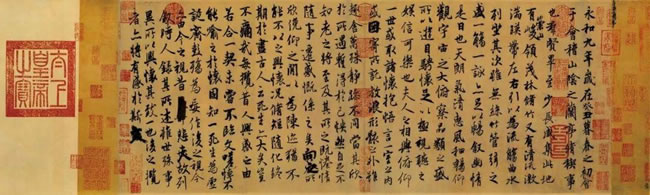 永和九年歲在癸丑暮春之初會
于會稽山陰之蘭亭脩稧事
也羣賢畢至少長咸集此地
有崇山峻領茂林脩竹又有清流激
湍暎帶左右引以為流觴曲水
列坐其次雖無絲竹管弦之
盛一觴一詠亦足以暢敘幽情
是日也天朗氣清惠風和暢仰
觀宇宙之大俯察品類之盛
所以遊目騁懷足以極視聽之
娛信可樂也夫人之相與俯仰
一世或取諸懷抱悟言一室之內
或因寄所託放浪形骸之外雖
趣舍萬殊靜躁不同當其欣
於所遇暫得於己快然自足不
知老之將至及其所之既惓情
隨事遷感慨係之矣向之所
欣俛仰之閒以為陳迹猶不
能不以之興懷況脩短隨化終
期於盡古人云死生亦大矣豈
不痛哉每攬昔人興感之由
若合一契未嘗不臨文嗟悼不
能喻之於懷固知一死生為虛
誕齊彭殤為妄作後之視今
亦由今之視昔悲夫故列
敘時人錄其所述雖世殊事
異所以興懷其致一也後之攬
者亦將有感於斯文
太上皇帝之寶